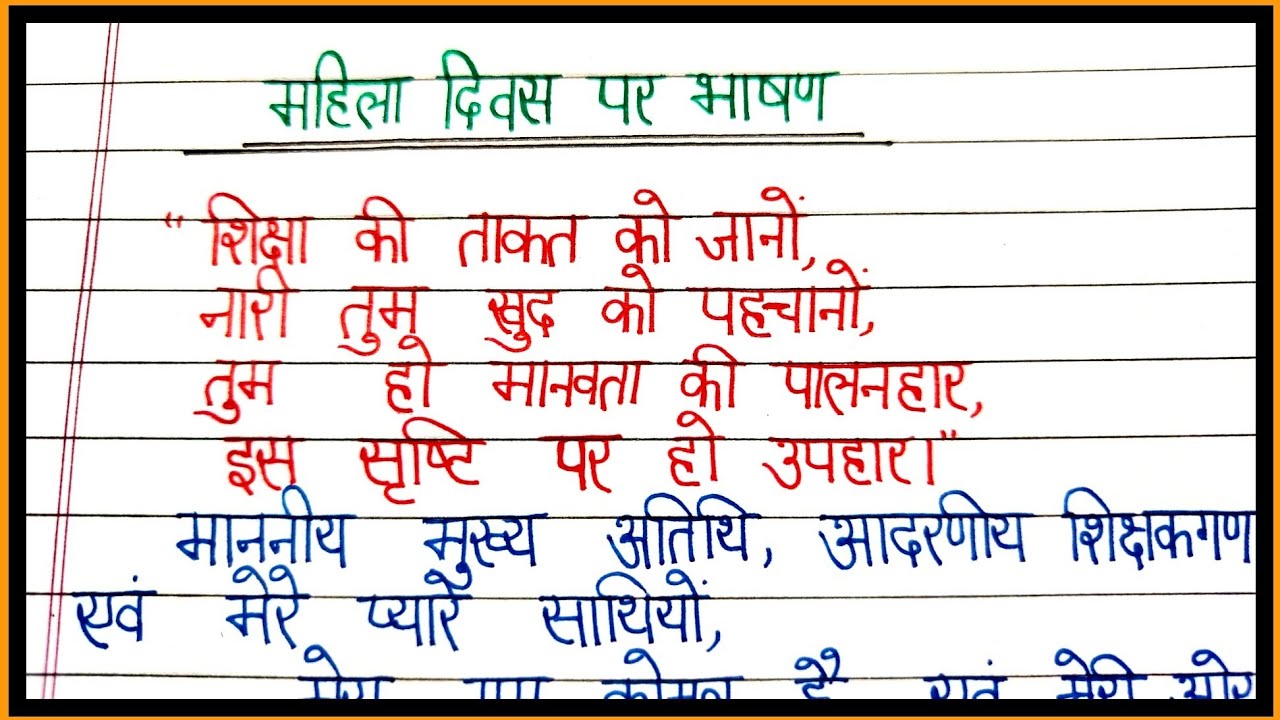 महिला दिवस पर भाषण
"शिक्षा की ताकत को जानों,
नारी तुम खुद को पहचानों,
तुम हो मानवता की पालनहार,
इस सृष्टि पर हो उपहार।"
माननीय मुख्य अतिथि, आदरणीय शिक्षकगण
एवं मेरे प्यारे साथियों,
मेरा नाम कोमल है एवं मेरी ओर